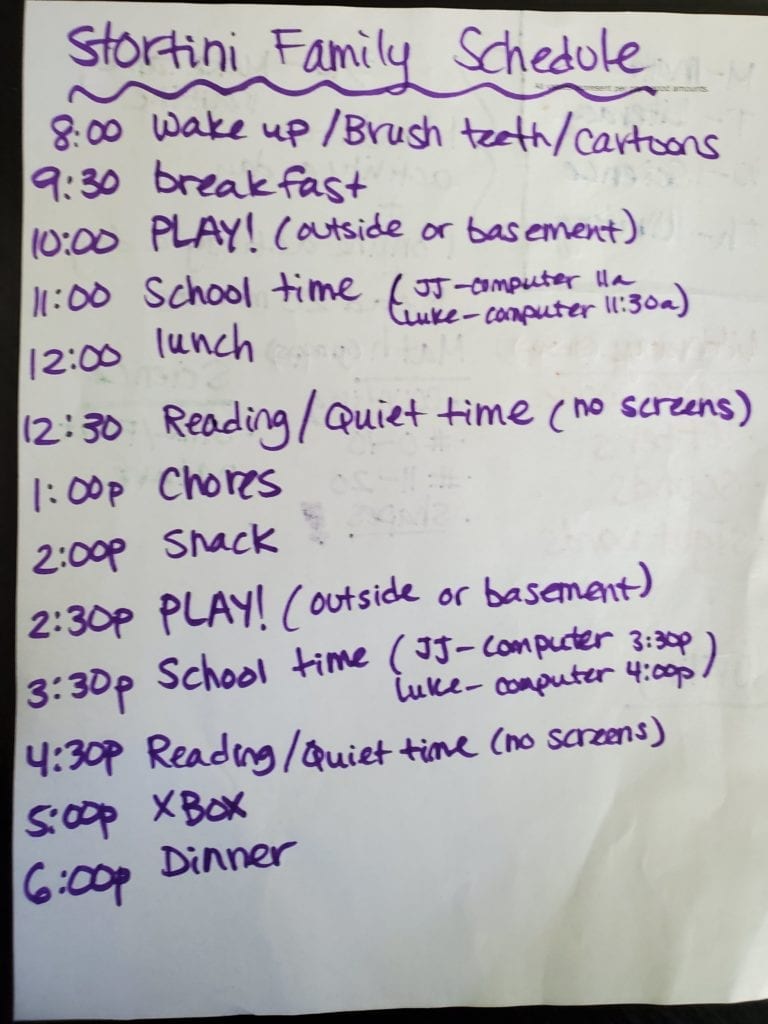 Stortini Family Schedule
8:00 Wake up /Brush teeth/cartoons
9:30 breakfast
10:00 PLAY! (outside or basement)
11:00 School time (JJ-computer 11a
(Luke-computer 11:30a)
12:00 lunch
12:30 Reading/Quiet time (no screens)
1:00p Chores
2:00p Snack
2:30p PLAY! (outside or basement)
3:30p School time (JJ-computer 3:30p)
Luke-computer 4:00p
4:30p Reading/Quiet time (no screens)
5:00p XBox
6:00p Dinner